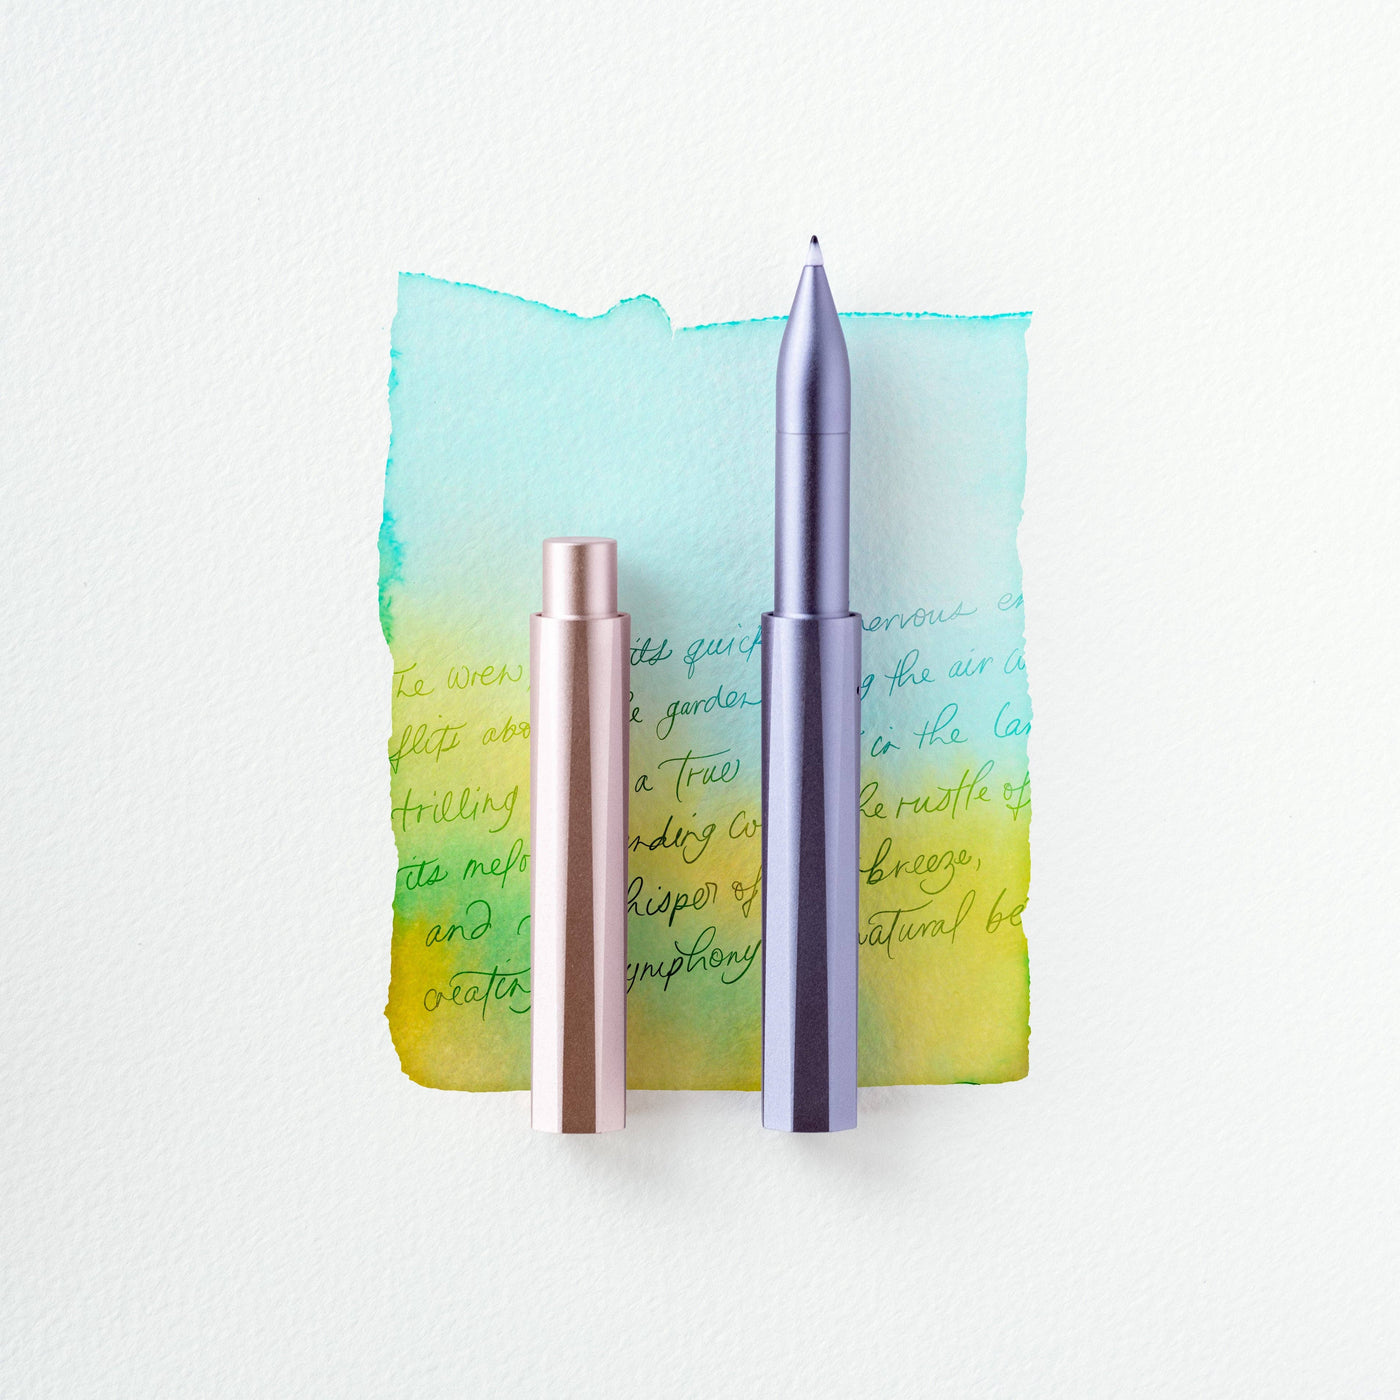 The wren, its quick nervous en
flits abo e garden g the air w
trilling a true in the lan
its melo ending co he rustle of
and hisper of breeze,
creating ymphony natural be